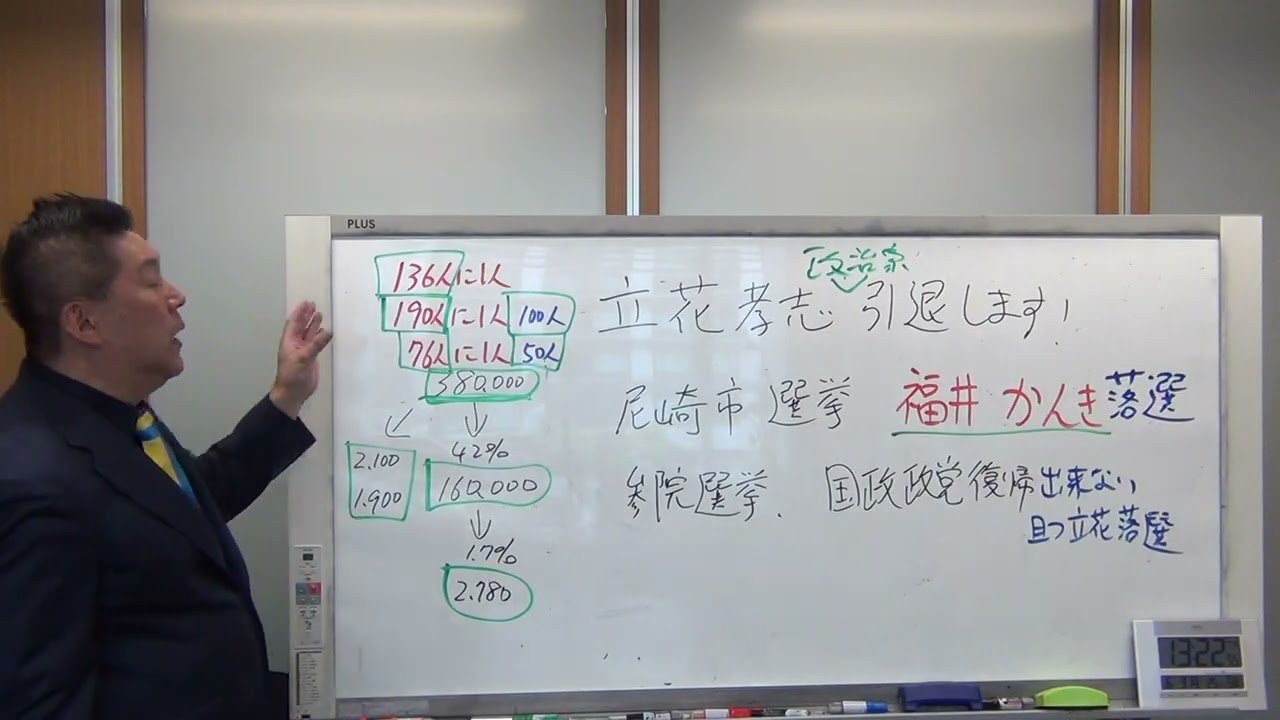 PLUS
136人に1人
190人に1人 100人
76人に1人 50人
380,000
42%
2.100
1.900
160,000
1.7%
2.780
政治家
立花孝志 引退します!
尼崎市選挙 福井かんき落選
参院選挙、国政政党復帰出来ない
且つ立花落選
13:22